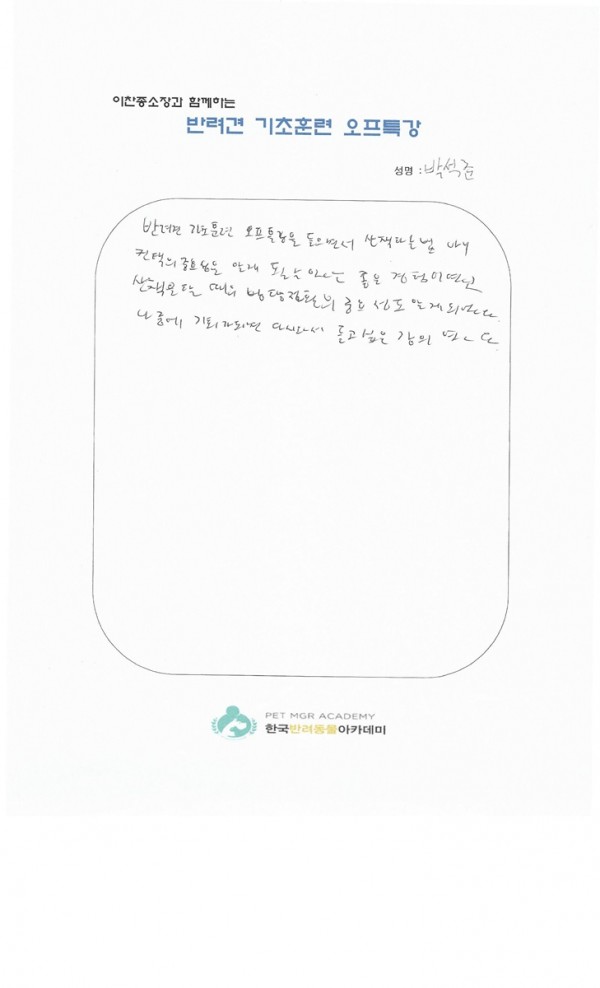 이찬종소장과 함께하는
반려견 기초훈련 오프특강
성명 : 박석준
반려견 기초훈련 오프특강을 들으면서 산책다는법
중요성을 알게 되었 좋은 경험이였고
산책을 할 때의 방향전환의 중요성도 알게되었다.
나중에 기회가되면 다시와서 듣고싶은 강의 였다
PET MGR ACADEMY
한국반려동물아카데미